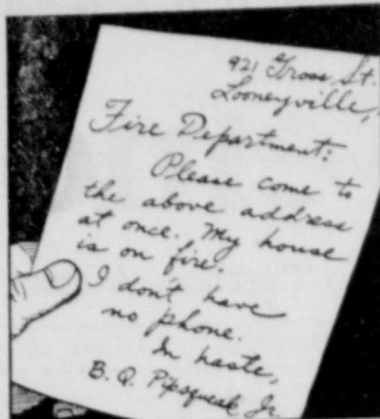 921 Gross St.
Looneyville,
Fire Department:
Please come to
the above address
at once. My house
is on fire.
I don't have
no phone.
In haste,
B. Q. Pipsqueak Jr.